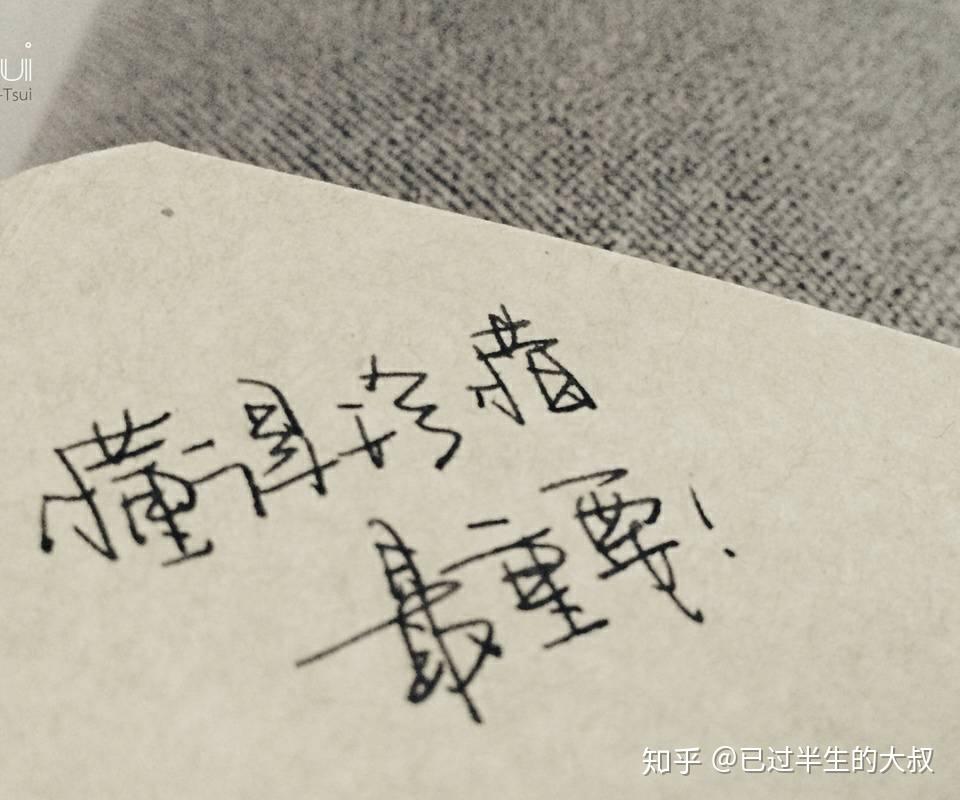 ui
-Tsui
懂得珍惜
最重要!
知乎 @已过半生的大叔